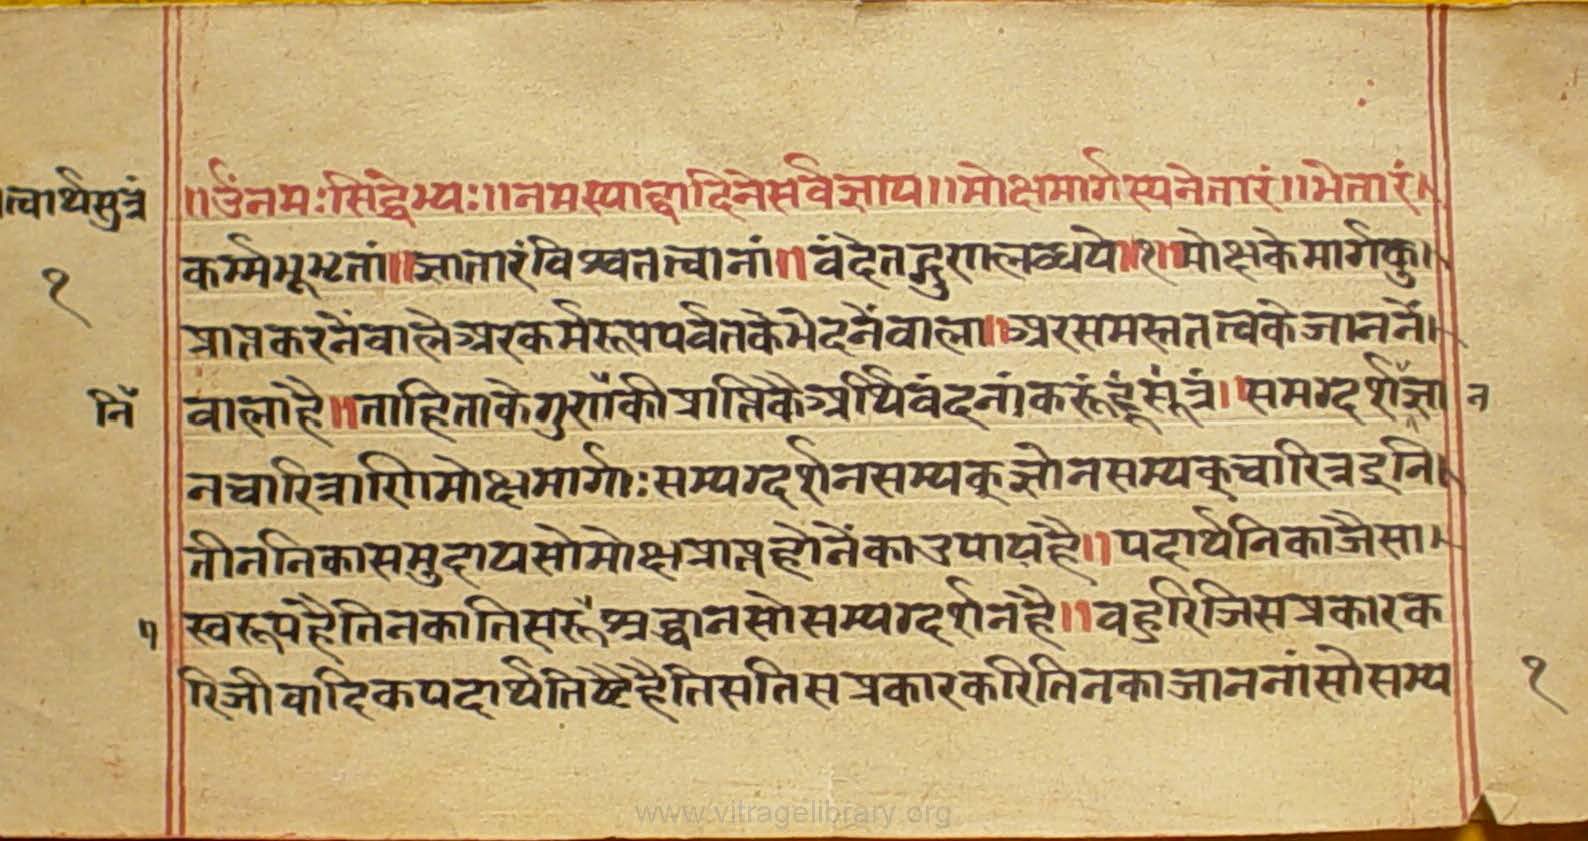 त्वार्थसुत्रं
॥उंनमःसिद्धेभ्यः॥नमस्याद्वादिनेसर्वज्ञाय॥मोक्षमार्गस्यनेतारं॥भेतारं।
१
कर्म्मभूभृतां॥ज्ञातारंविश्वतत्वानां॥वंदेतद्गुणलब्धये॥१॥मोक्षकेमार्गकु।
प्राप्तकरनेंवालेअरकर्मरूपपर्वतकेभेदनेंवाला॥अरसमस्ततत्वकेजाननें।
निं
वालाहै॥ताहिताकेगुणोंकीप्राप्तिकैअर्थिवंदनांकरूंहूंसूंत्रं॥समग्दर्शंज्ञा
न
नचारित्राणिमोक्षमार्गाःसम्यग्दर्शनसम्यक्ज्ञोनसम्यक्चारित्रइनि।
तीननिकासमुदायसोमोक्षप्राप्तहोनेंकाउपायहै॥पदार्थनिकाजैसा।
स्वरूपहैतिनकातिसरूपश्रद्धानसोसम्यग्दर्शनहै॥वहुरिजिसप्रकारक
रिजीवादिकपदार्थतिष्टैहैतिसतिसप्रकारकरितिनकाजाननांसोसम्य
१
www.vitragelibrary.org